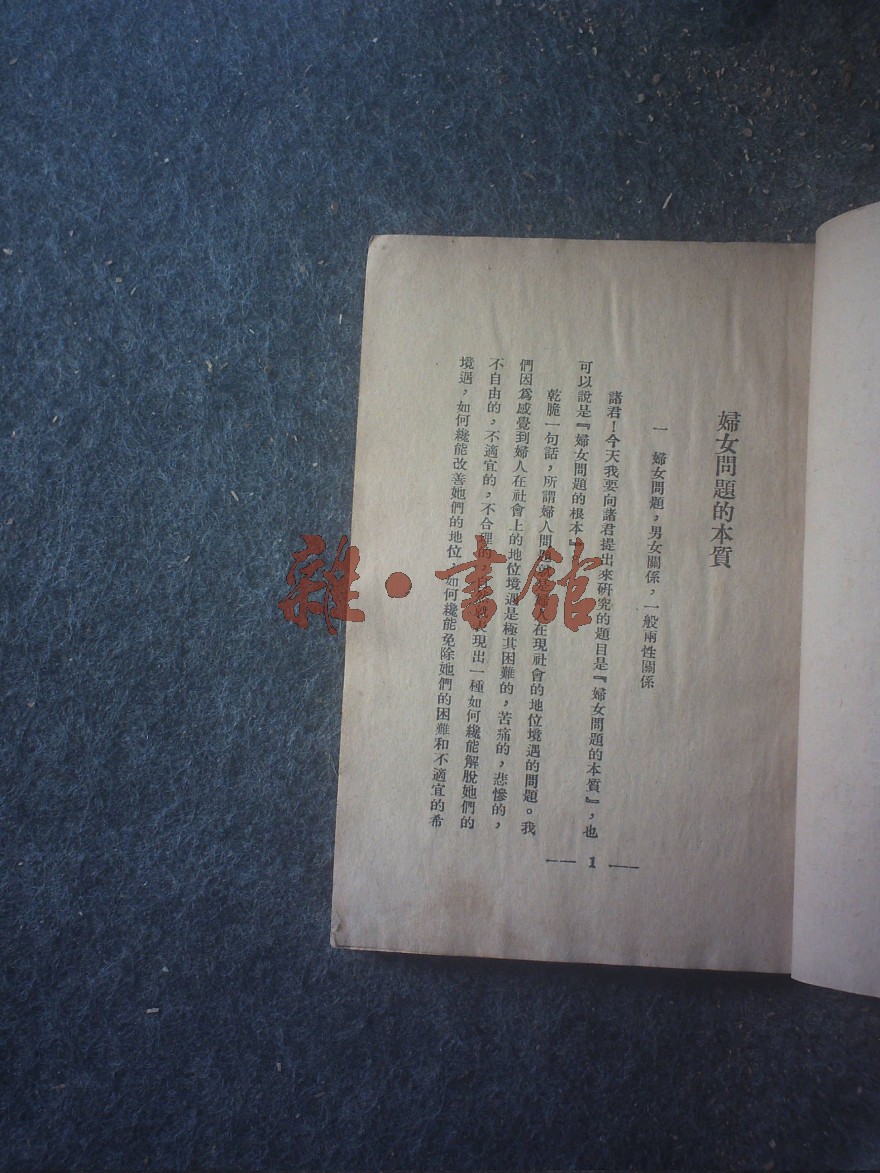 婦女問題的本質
一 婦女問題，男女關係，一般兩性關係
諸君！今天我要向諸君提出來研究的題目是『婦女問題的本質』，也
可以說是『婦女問題的根本』
乾脆一句話，所謂婦人問題 人在現社會的地位境遇的問題。我
們因爲感覺到婦人在社會上的地位境遇是極其困難的，苦痛的，悲慘的，
不自由的，不適宜的，不合理的， 現出一種如何纔能解脫她們的
境遇，如何纔能改善她們的地位，如何纔能免除她們的困難和不適宜的希
— 1 —
雜·書館